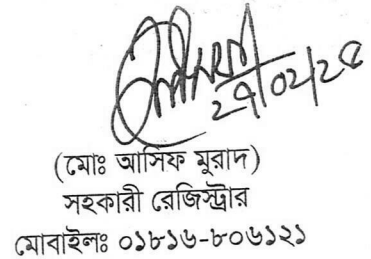 ২৭/০২/২৪
(মোঃ আসিফ মুরাদ)
সহকারী রেজিস্ট্রার
মোবাইলঃ ০১৮১৬-৮০৬১২১